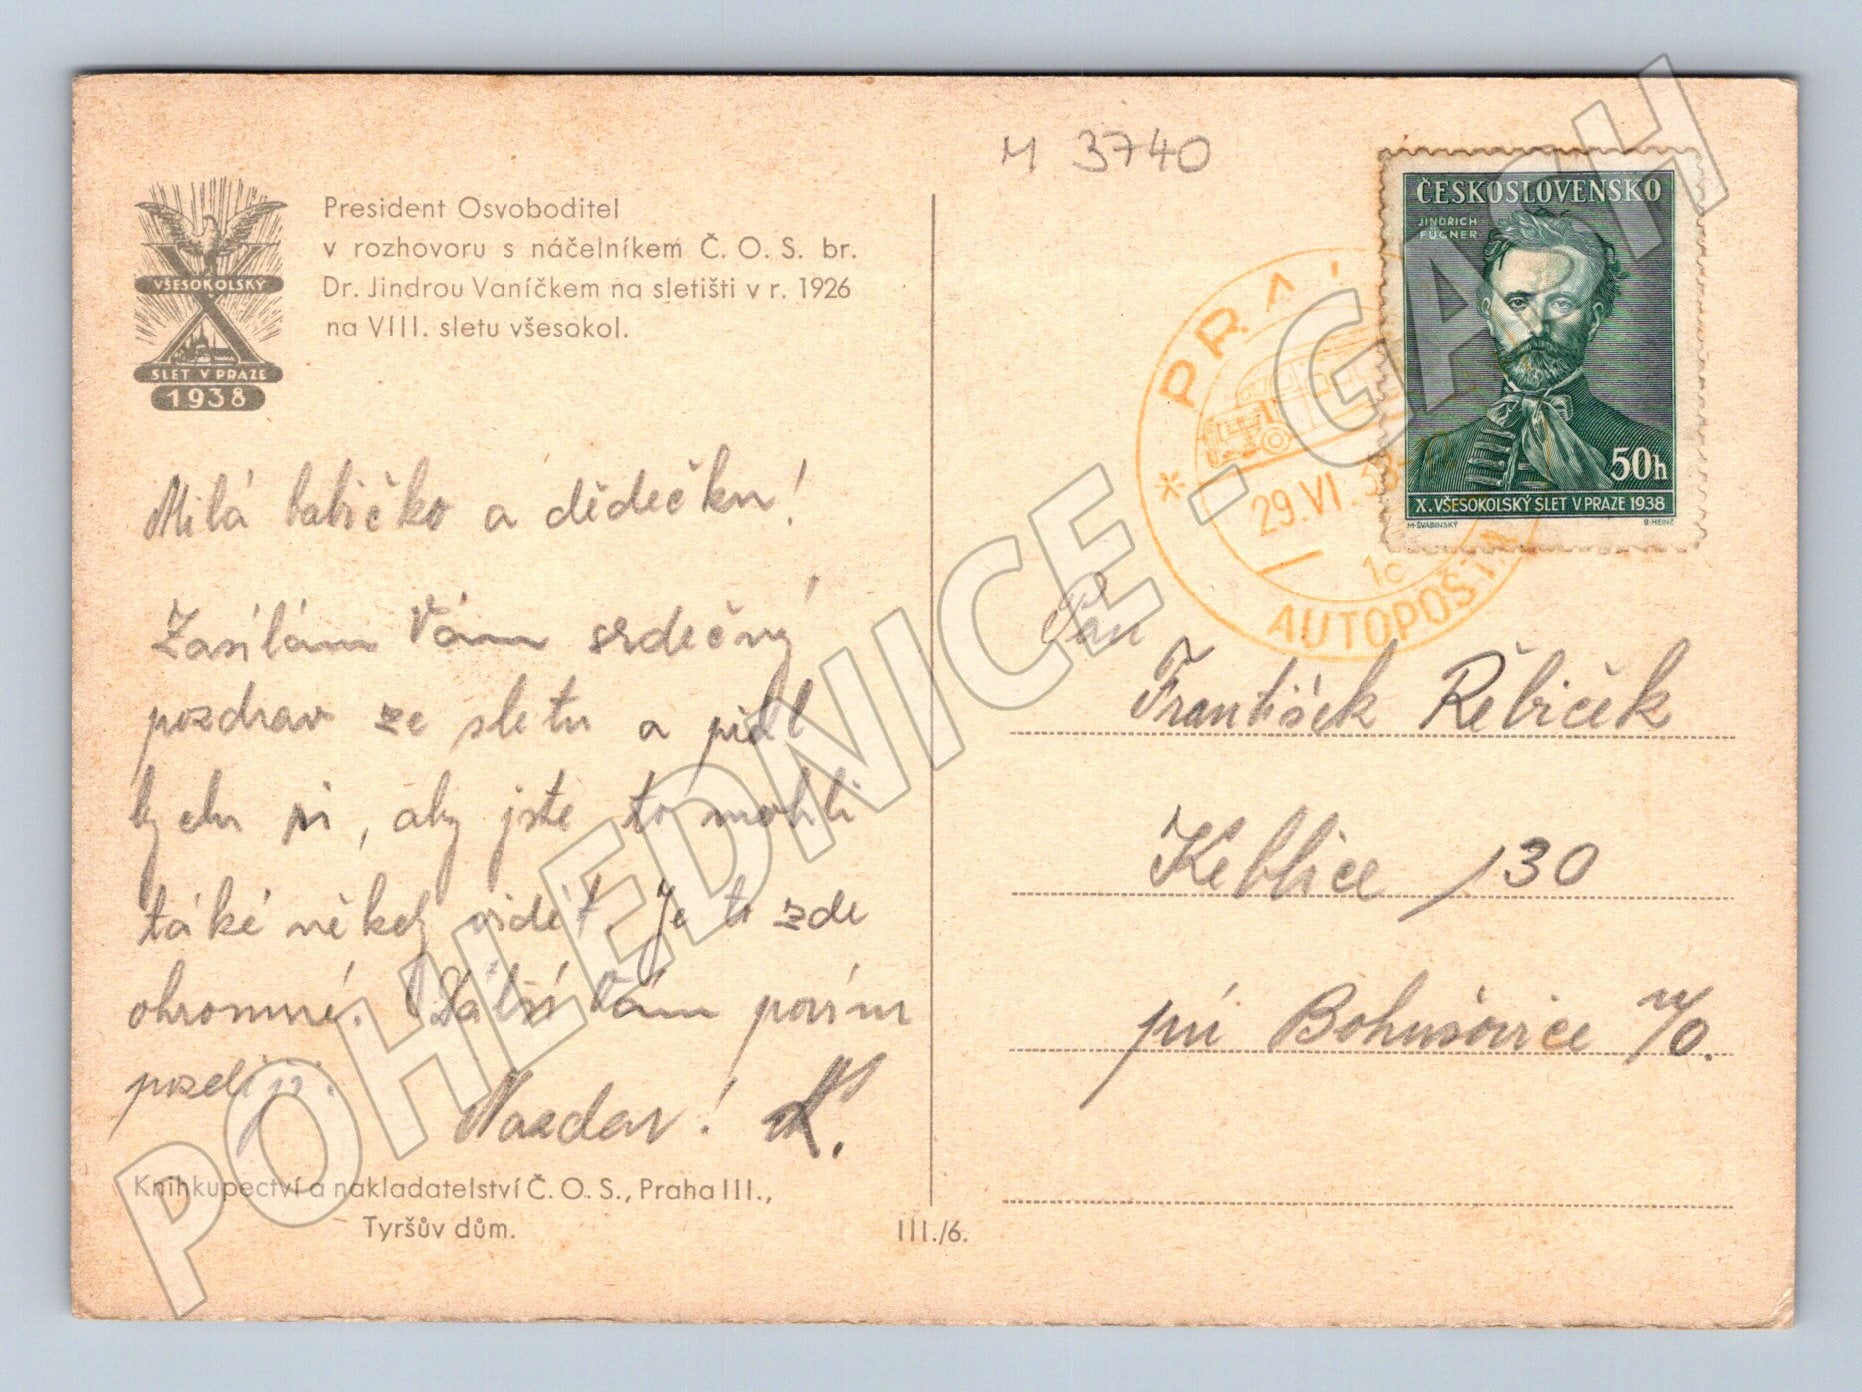 M 3740
President Osvoboditel
v rozhovoru s náčelníkem Č. O. S. br.
Dr. Jindrou Vaníčkem na sletišti v r. 1926
na VIII. sletu všesokol.
VŠESOKOLSKÝ
SLET V PRAZE
1938
Milá babičko a dědečku!
Zasílám Vám srdečný
pozdrav ze sletu a přál
bych si, aby jste to mohli
také někdy vidět. Je to zde
ohromné. Další Vám povím
později.
Nazdar!
Knihkupectví a nakladatelství Č. O. S., Praha III.,
Tyršův dům.
III./6.
ČESKOSLOVENSKO
JINDŘICH
FÜGNER
50h
X. VŠESOKOLSKÝ SLET V PRAZE 1938
M. ŠVABINSKÝ
B. HEINZ
* PRA
29.VI.38-12
1c
AUTOPOŠTA
Pan
František Řebíček
Keblice 130
při Bohušovice n/O.
POHLEDNICE - GASH